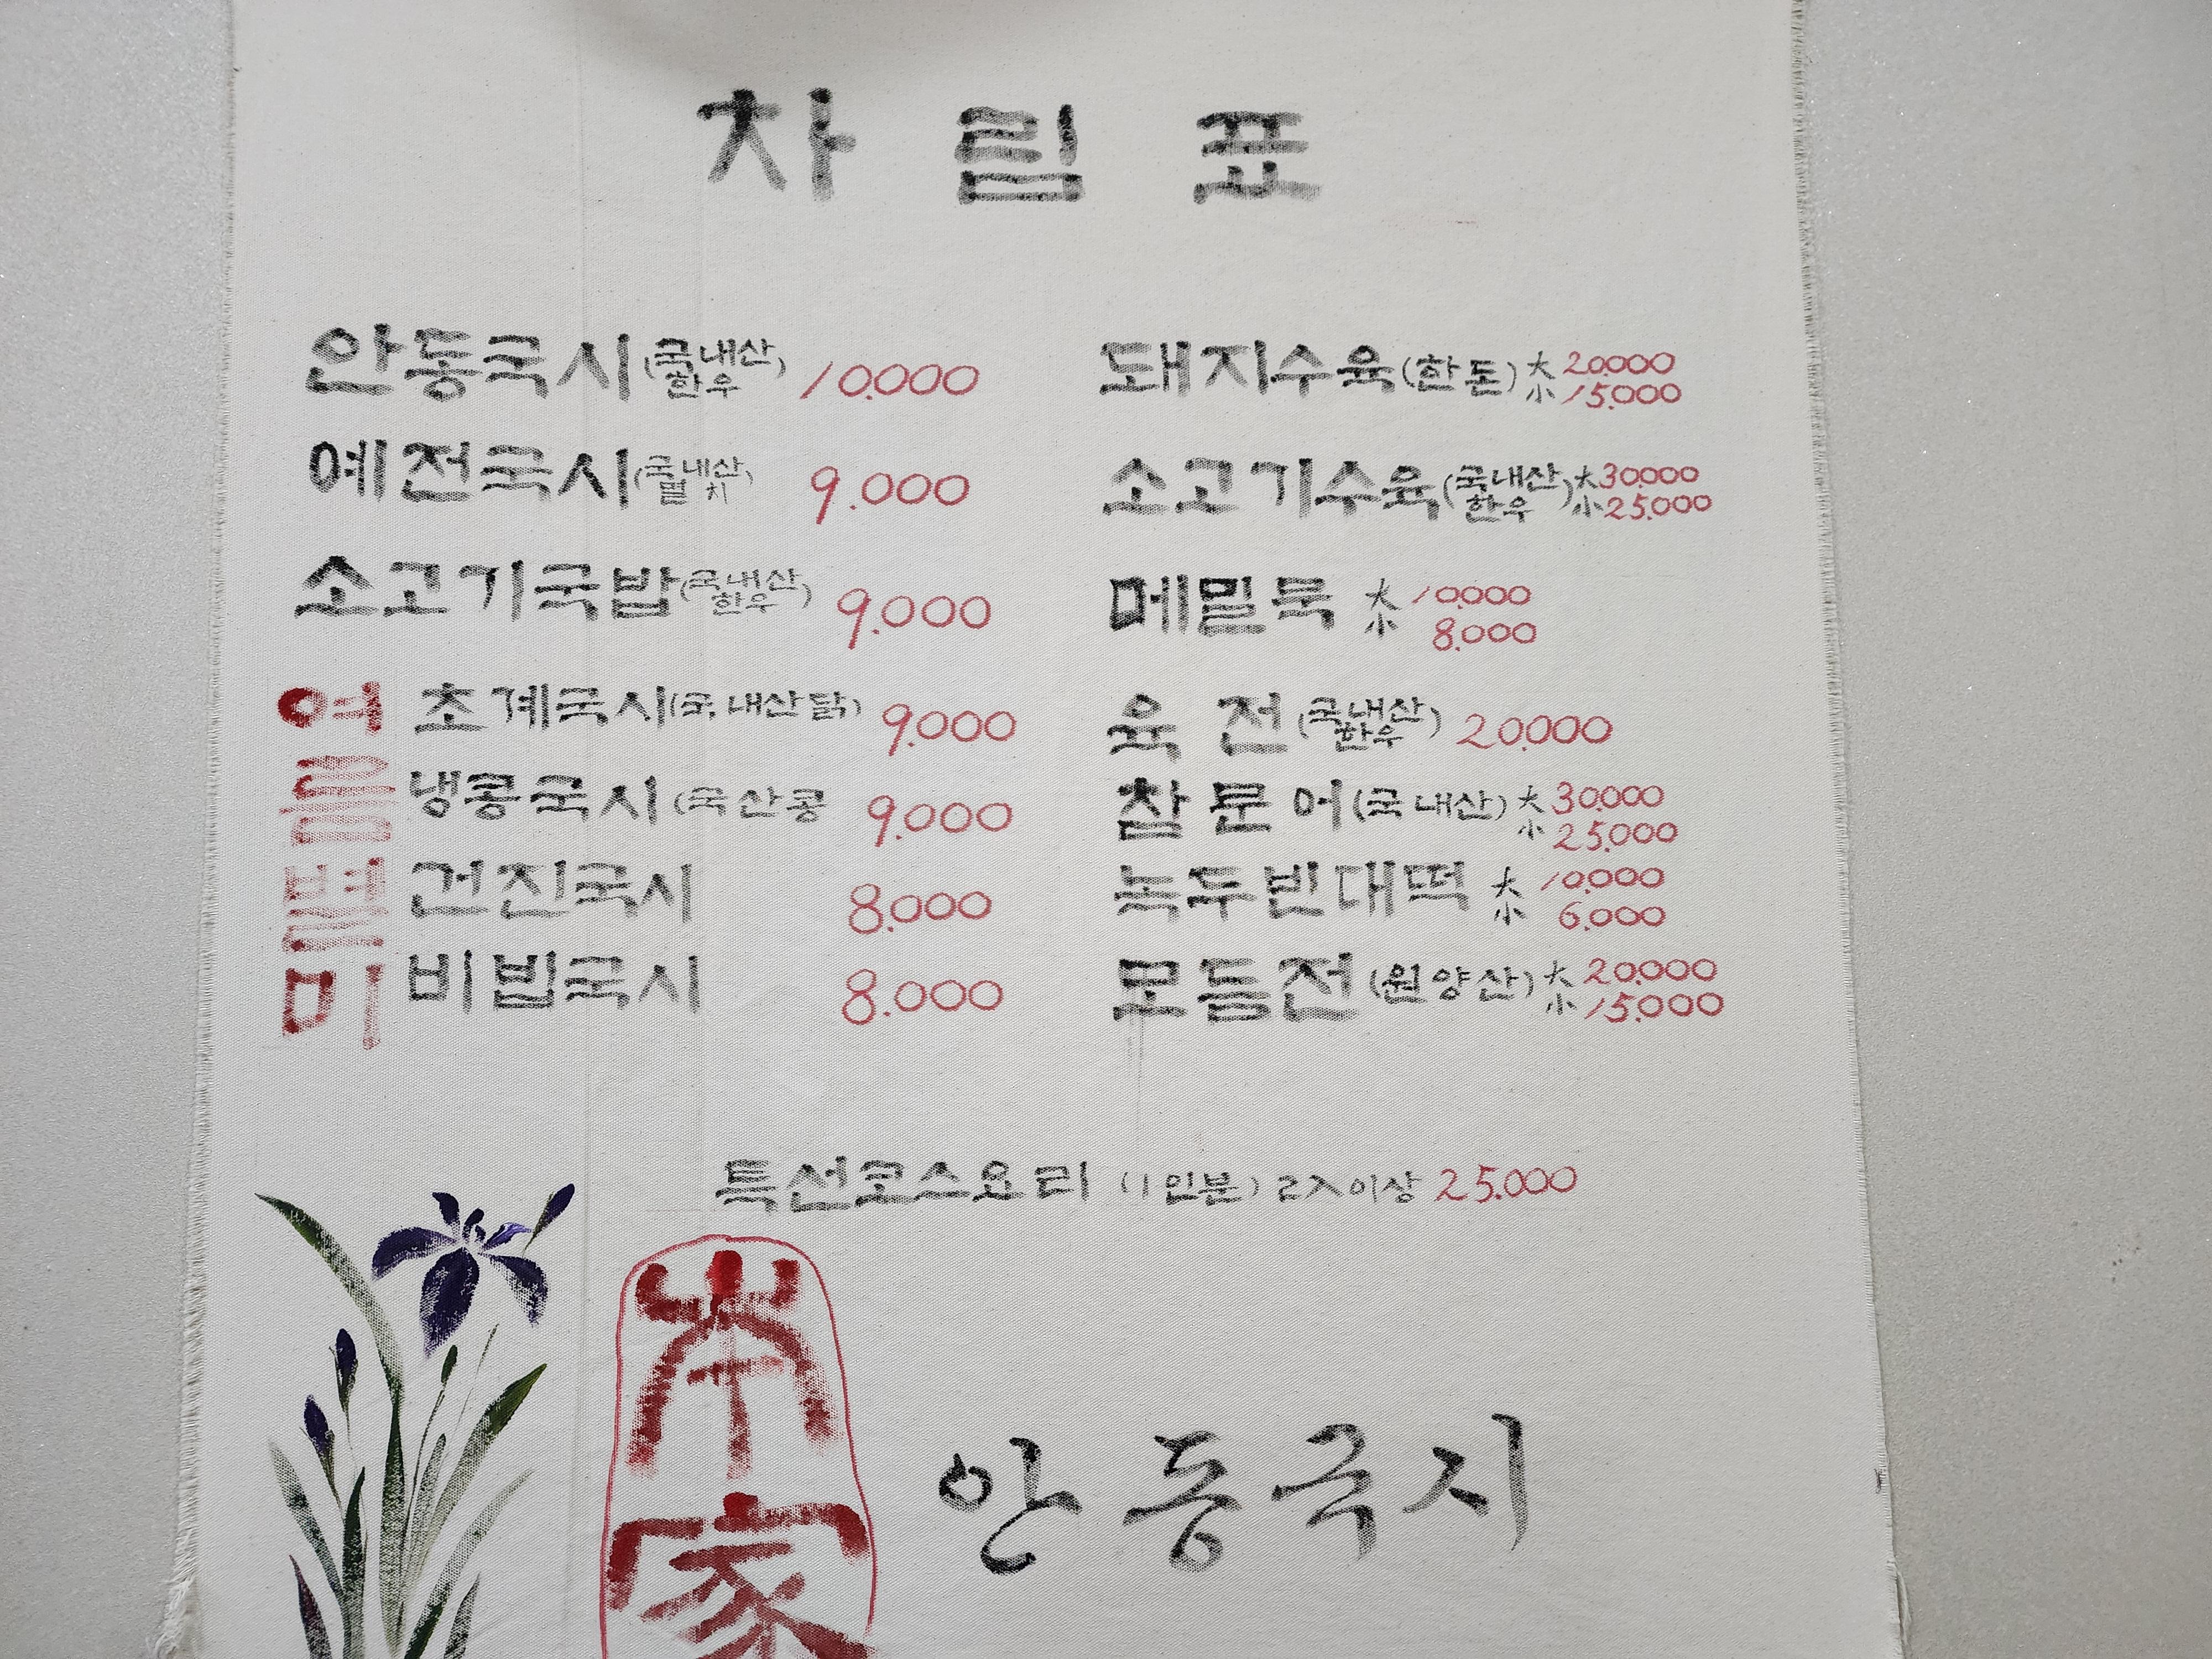 차림표
안동국시(국내산 한우) 10.000
예전국시(국내산 멸치) 9.000
소고기국밥(국내산 한우) 9.000
여름별미
초계국시(국내산닭) 9.000
냉콩국시(국산콩 9.000
건진국시 8.000
비빔국시 8.000
돼지수육(한돈) 大 20.000
小 15.000
소고기수육(국내산 한우) 大 30.000
小 25.000
메밀묵 大 10.000
小 8.000
육전(국내산 한우) 20.000
참문어(국내산) 大 30.000
小 25.000
녹두빈대떡 大 10.000
小 6.000
모듬전(원양산) 大 20.000
小 15.000
특선코스요리 (1인분) 2人이상 25.000
本家
안동국시